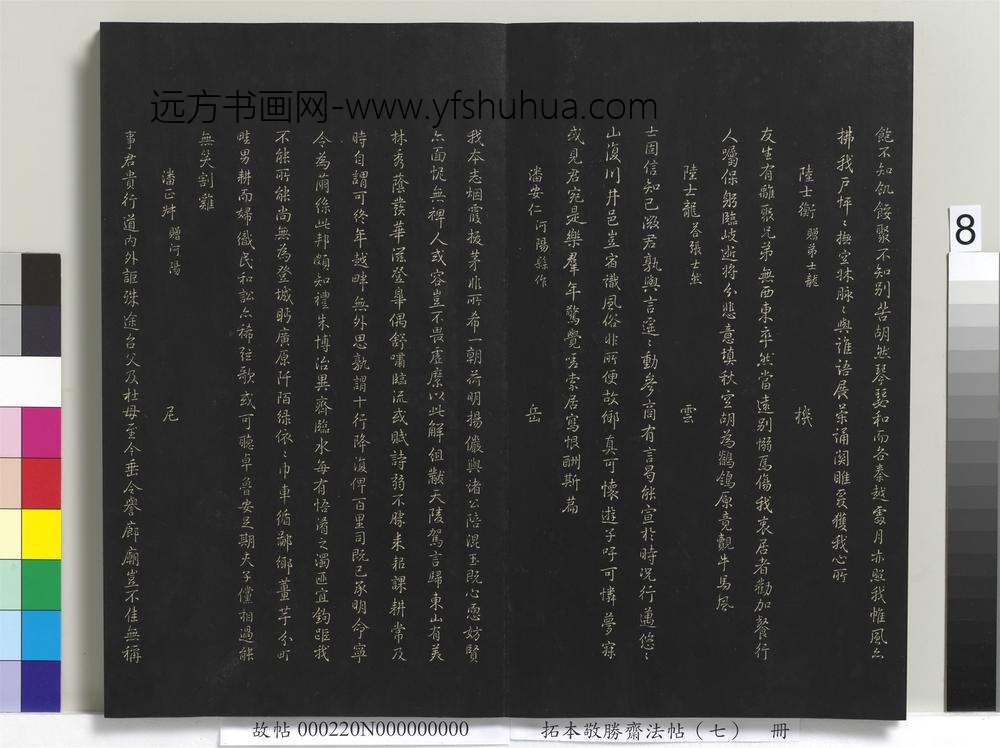 远方书画网-www.yfshuhua.com
飽不知飢餒聚不知別苦胡然琴瑟和而各秦越處月亦照我帷風亦
拂我戶怦〻撫空牀脉〻與誰語展茶誦關雎爰獲我心所
陸士衡 贈弟士龍 機
友生有離聚兄弟無西東卒然當遠別惻焉傷我衷居者勸加餐行
人囑保躬臨歧逝將分悲意填秋空胡為鶺鴒原竟覩牛馬風
陸士龍 答張士然 雲
士固信知己微君孰與言遥〻動參商有言曷能宣於時況行邁悠〻
山復川井邑豈宿識風俗非所便故鄉真可懷遊子吁可憐夢寐
或見君宛是樂羣年驚覺乃索居寫恨酬斯篇
潘安仁 河陽縣作 岳
我本志烟霞拔茅非所希一朝荷明揚儼與諸公陪混玉既心恧妨賢
亦面怩無裨人或容豈不畏虛縻以此解組黻天陵駕言歸東山有美
林秀蔭蕟華滋登皋偶舒嘯臨流或賦詩弱不勝耒耜課耕常及
時自謂可終年越畔無外思孰謂十行降復俾百里司既已承明命寧
今為繭絲此邦頗知禮朱博治異齊臨水每有悟淆之濁匪宜鈞距我
不能所能尚無為登城眄廣原阡陌綠依〻巾車循鄙鄉薑芋分町
畦男耕而婦織民和訟亦稀弦歌或可聽卓魯安足期夫子儻相過能
無笑割雞
潘正叔 贈河陽 尼
事君貴行道內外詎殊途召父及杜母至今垂令譽廊廟豈不佳無稱
8
故帖 000220N000000000
拓本敬勝齋法帖（七） 冊